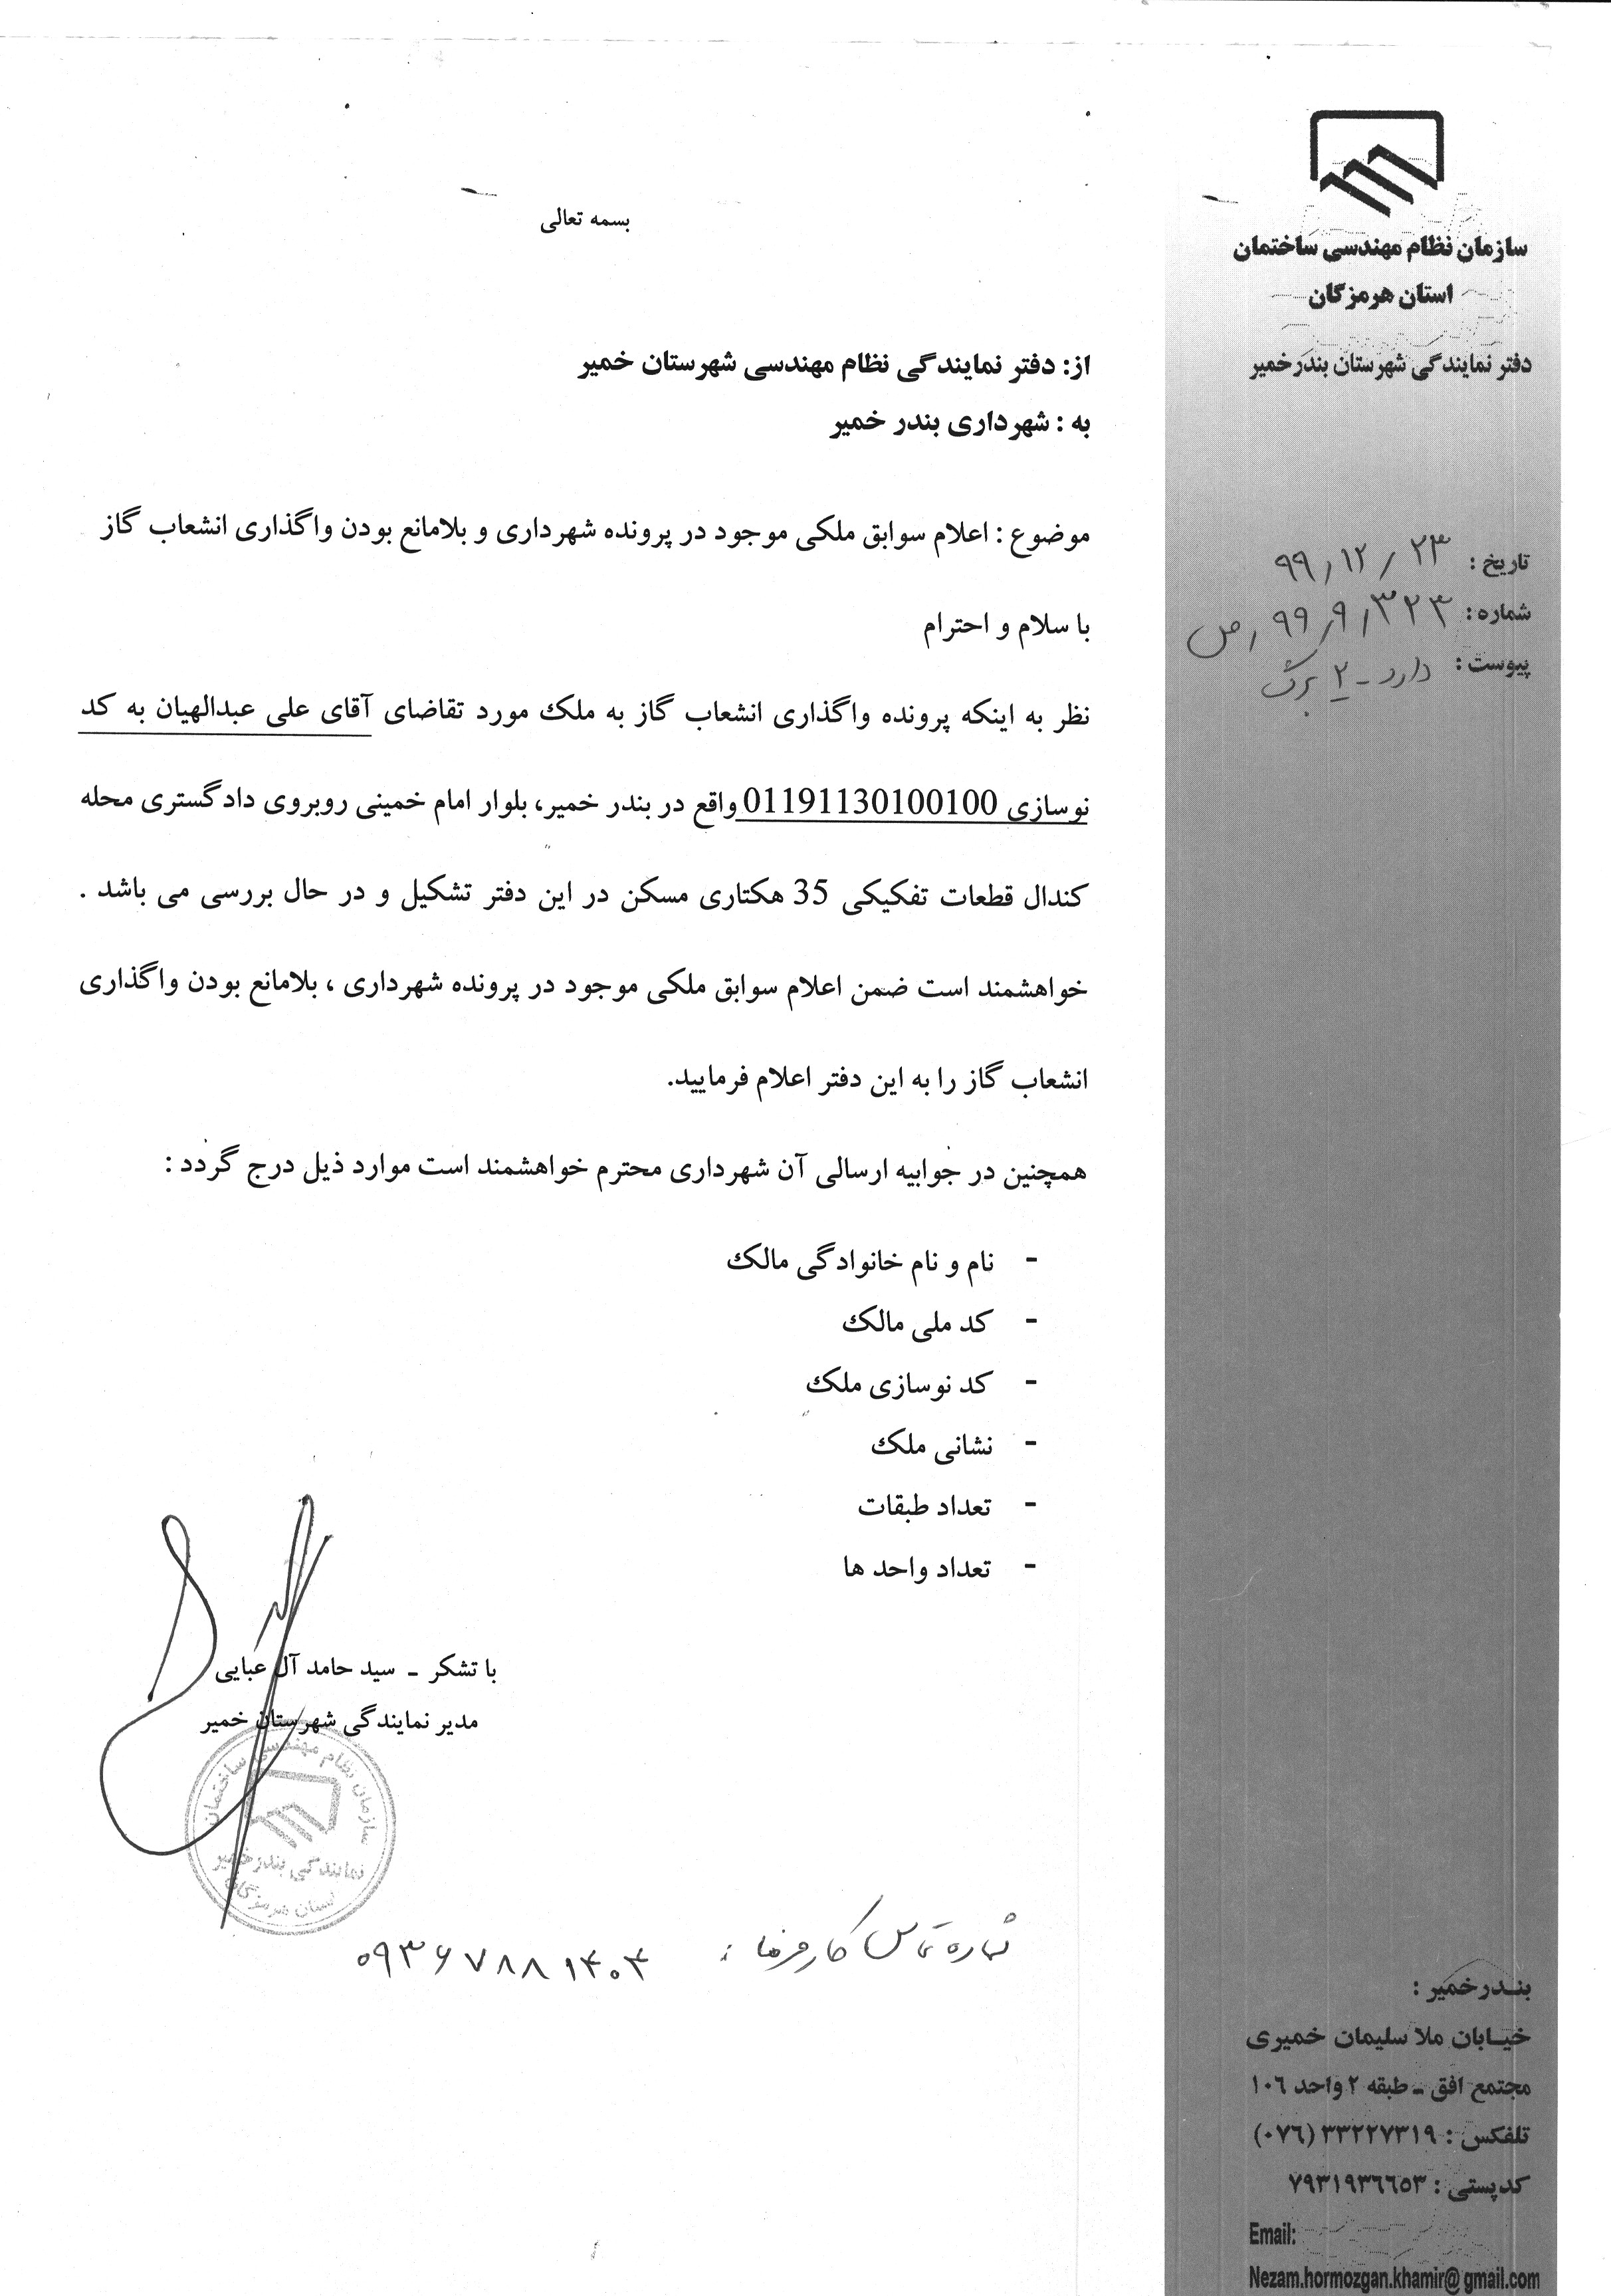 بسمه تعالی
سازمان نظام مهندسی ساختمان
استان هرمزگان
دفتر نمایندگی شهرستان بندرخمیر
تاریخ : ۹۹/۱۲/۲۳
شماره : ۹۹/۹/۳۲۳/ص
پیوست : دارد - ۲ برگ
از: دفتر نمایندگی نظام مهندسی شهرستان خمیر
به : شهرداری بندر خمیر
موضوع : اعلام سوابق ملکی موجود در پرونده شهرداری و بلامانع بودن واگذاری انشعاب گاز
با سلام و احترام
نظر به اینکه پرونده واگذاری انشعاب گاز به ملک مورد تقاضای آقای علی عبدالهیان به کد
نوسازی 01191130100100 واقع در بندر خمیر، بلوار امام خمینی روبروی دادگستری محله
کندال قطعات تفکیکی 35 هکتاری مسکن در این دفتر تشکیل و در حال بررسی می باشد .
خواهشمند است ضمن اعلام سوابق ملکی موجود در پرونده شهرداری ، بلامانع بودن واگذاری
انشعاب گاز را به این دفتر اعلام فرمایید.
همچنین در جوابیه ارسالی آن شهرداری محترم خواهشمند است موارد ذیل درج گردد :
- نام و نام خانوادگی مالک
- کد ملی مالک
- کد نوسازی ملک
- نشانی ملک
- تعداد طبقات
- تعداد واحد ها
با تشکر - سید حامد آل عبایی
مدیر نمایندگی شهرستان خمیر
سازمان نظام مهندسی ساختمان
نمایندگی بندرخمیر
استان هرمزگان
شماره تماس کارفرما : ۰۹۳۶۷۸۸۱۴۰۴
بندرخمیر :
خیابان ملا سلیمان خمیری
مجتمع افق - طبقه ۲ واحد ۱۰۶
تلفکس : ۳۳۲۲۷۳۱۹ (۰۷۶)
کدپستی : ۷۹۳۱۹۳۶۶۵۳
Email:
Nezam.hormozgan.khamir@gmail.com